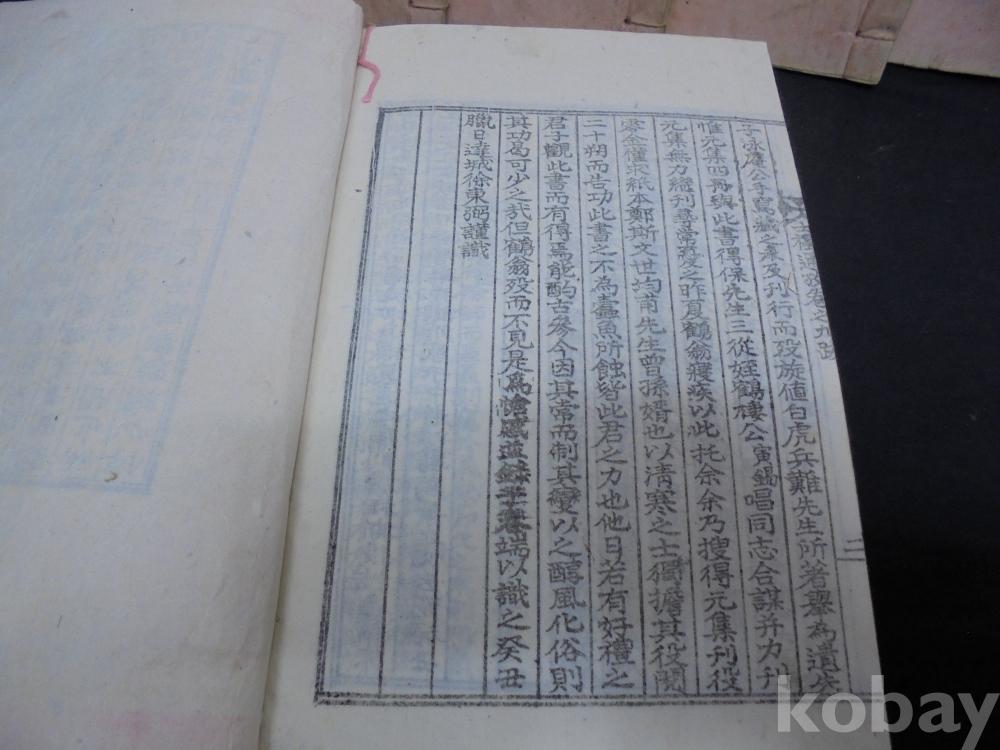 子泳慶公手寫藏之未及刊行而歿旋値白虎兵難先生所著擧為遺失
惟元集四冊與此書得保先生三從姪鶴棲公寅錫唱同志合謀幷力刊
元集無力繼刊尋常歿之昨夏鶴翁癠疾以此托余余乃搜得元集刊役
零金僅求紙本鄭斯文世均甫先生曾孫婿也以淸寒之士獨擔其役閱
二十朔而告功此書之不為蠹魚所蝕皆此君之力也他日若有好禮之
君子觀此書而有得焉能酌古參今因其常而制其變以之醇風化俗則
其功曷可少之哉但鶴翁歿而不見是爲端以識之癸丑
臘日達城徐東弼謹識
卷之九跋
二
kobay